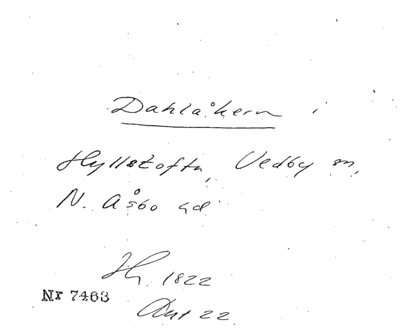 Dahlåkern i
Hyllstofta, Vedby sn,
N. Åsbo hd
Hg. 1822
Nr 7463
Akt 22